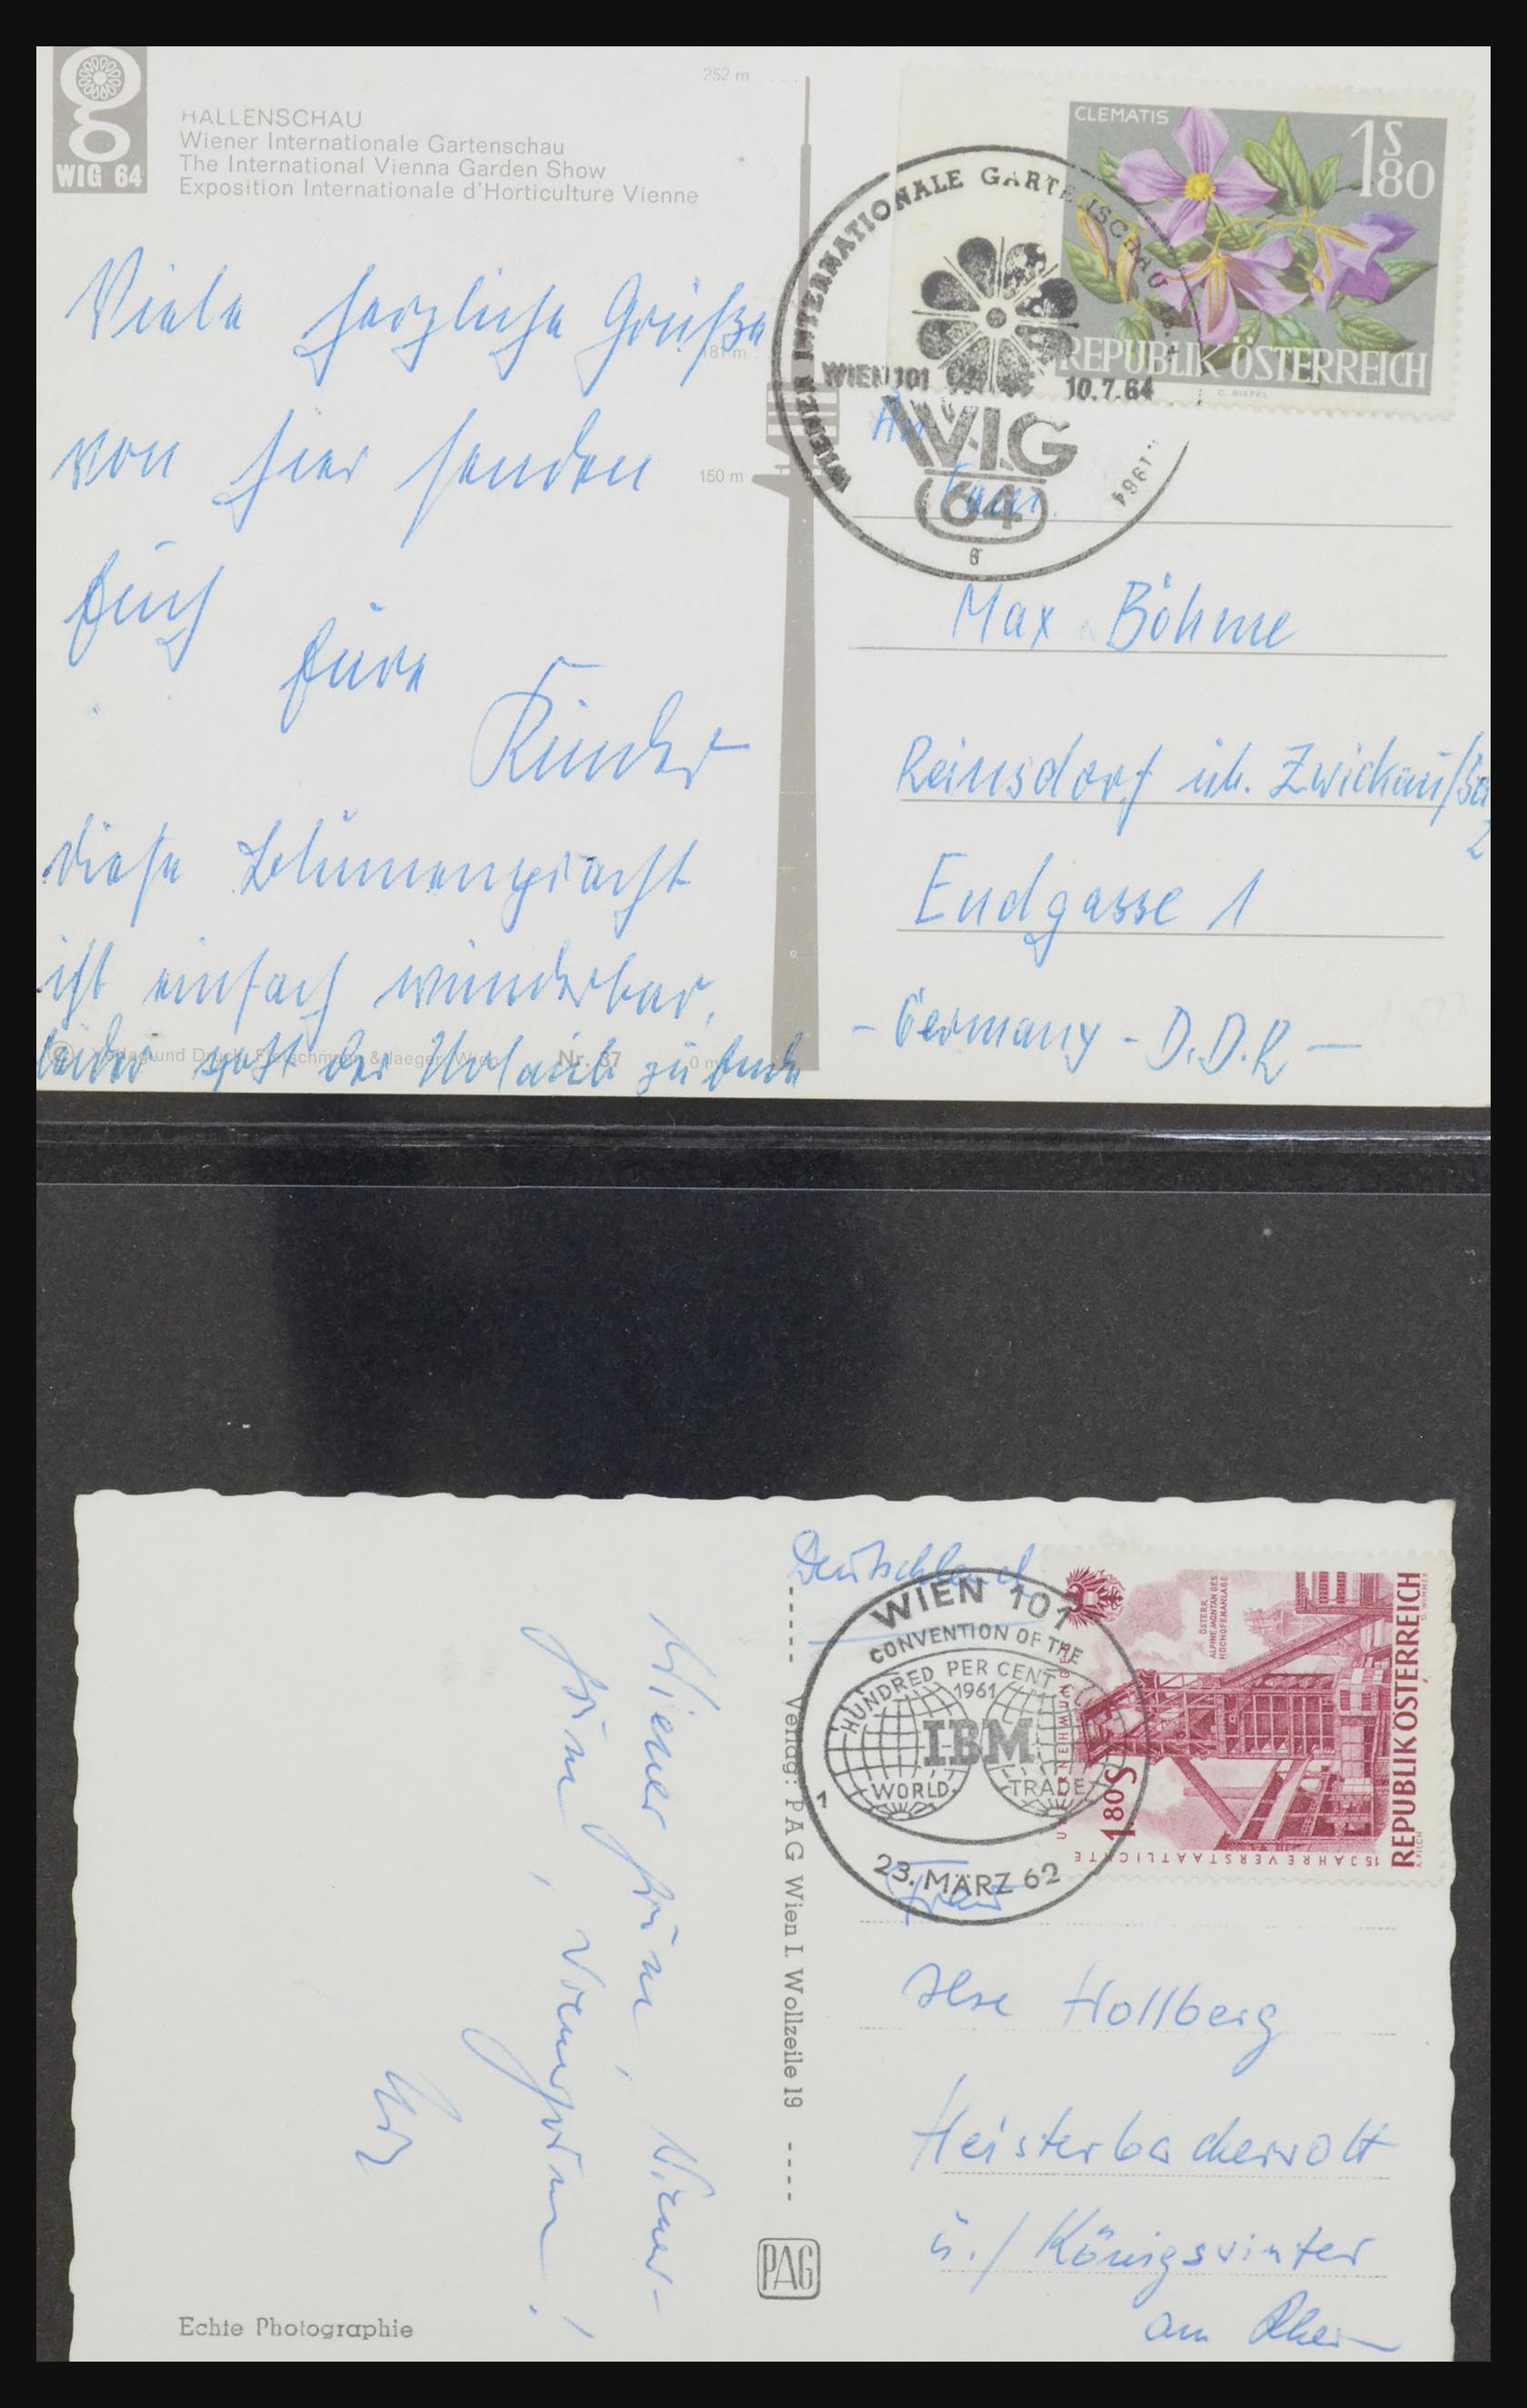 WIG 64
HALLENSCHAU
Wiener Internationale Gartenschau
The International Vienna Garden Show
Exposition Internationale d'Horticulture Vienne
252 m
181 m
150 m
0 m
CLEMATIS
1S80
REPUBLIK ÖSTERREICH
WIENER INTERNATIONALE GARTENSCHAU
1964
WIEN 101
10.7.64
WIG
64
6
Viele herzliche Grüße
von hier senden
Euch
Eure
Kinder
diese Blumenpracht
ist einfach wunderbar,
leider geht der Urlaub zu Ende
Verlag und Druck: Fleischmann & Jaeger, Wien Nr. 37
An
Fam.
Max Böhme
Reinsdorf üb. Zwickau/Sa
2
Endgasse 1
- Germany - D.D.R -
Deutschland
WIEN 101
CONVENTION OF THE
HUNDRED PER CENT
1961
IBM
WORLD TRADE
1
23. MÄRZ 62
15 JAHRE VERSTAATLICHTE
UNTERNEHMUNGEN
ÖSTERR.
ALPINE MONTAN GES.
HOCHOFENANLAGE
1.80 S
REPUBLIK ÖSTERREICH
Verlag: PAG Wien I. Wollzeile 19
PAG
Frau
Ilse Hollberg
Heisterbacherrott
ü./ Königswinter
am Rhein
Wiener
Echte Photographie